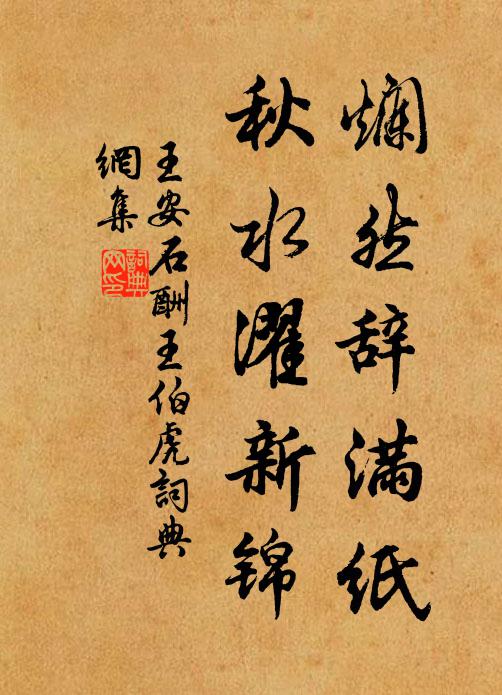 烂然辞满纸
秋水濯新锦
王安石酬王伯虎詞典
網集
詞典
网印